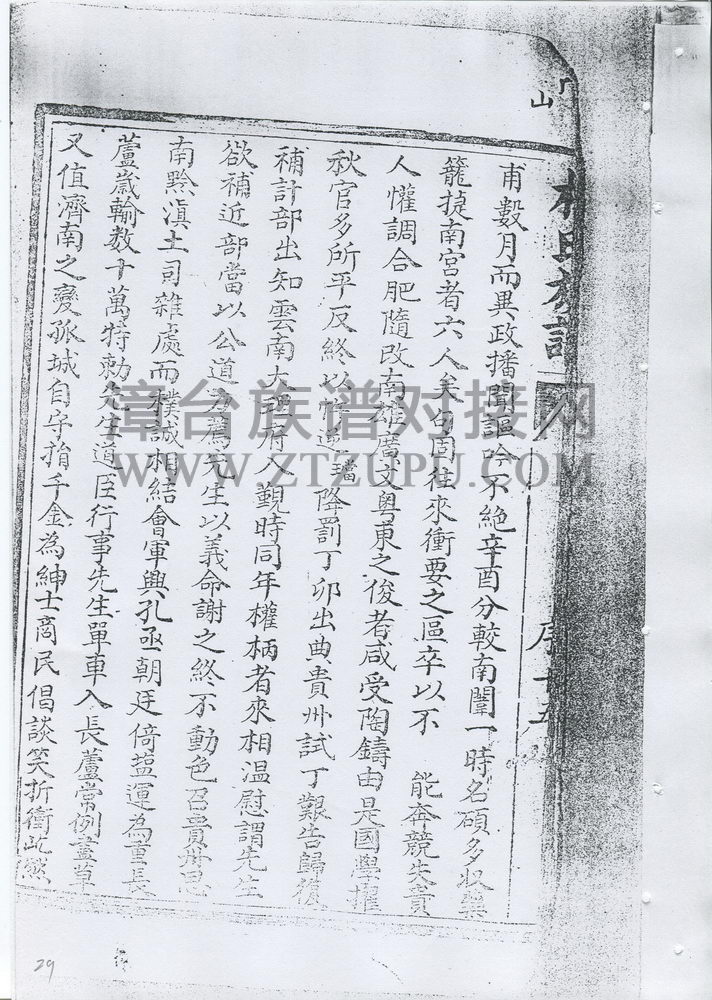 山
氏族譜
序
甫數月而異政播聞謳吟不絕辛酉分較南闈一時名碩多収與
籠捷南宮者六人矣句固往來衝要之區卒以不 能奔競失貴
人懽調合肥隨改南雄廣文粵東之俊者咸受陶鑄由是國學擢
秋官多所平反終以忤逆璫降罰丁卯出典貴州試丁艱告歸復
補計部出知雲南大理府入覲時同年權柄者來相温慰謂先生
欲補近部當以公道力薦先生以義命謝之終不動色召貴州思
南黔滇土司雜處而樸誠相結會軍興孔亟朝廷倚塩運為重長
蘆歲輸数十萬特勅先生道臣行事先生單車入長蘆常例盡革
又值濟南之變孤城自守捐千金為紳士商民倡談笑折衝此然
漳台族谱对接网
WWW.ZTZUPU.COM
29